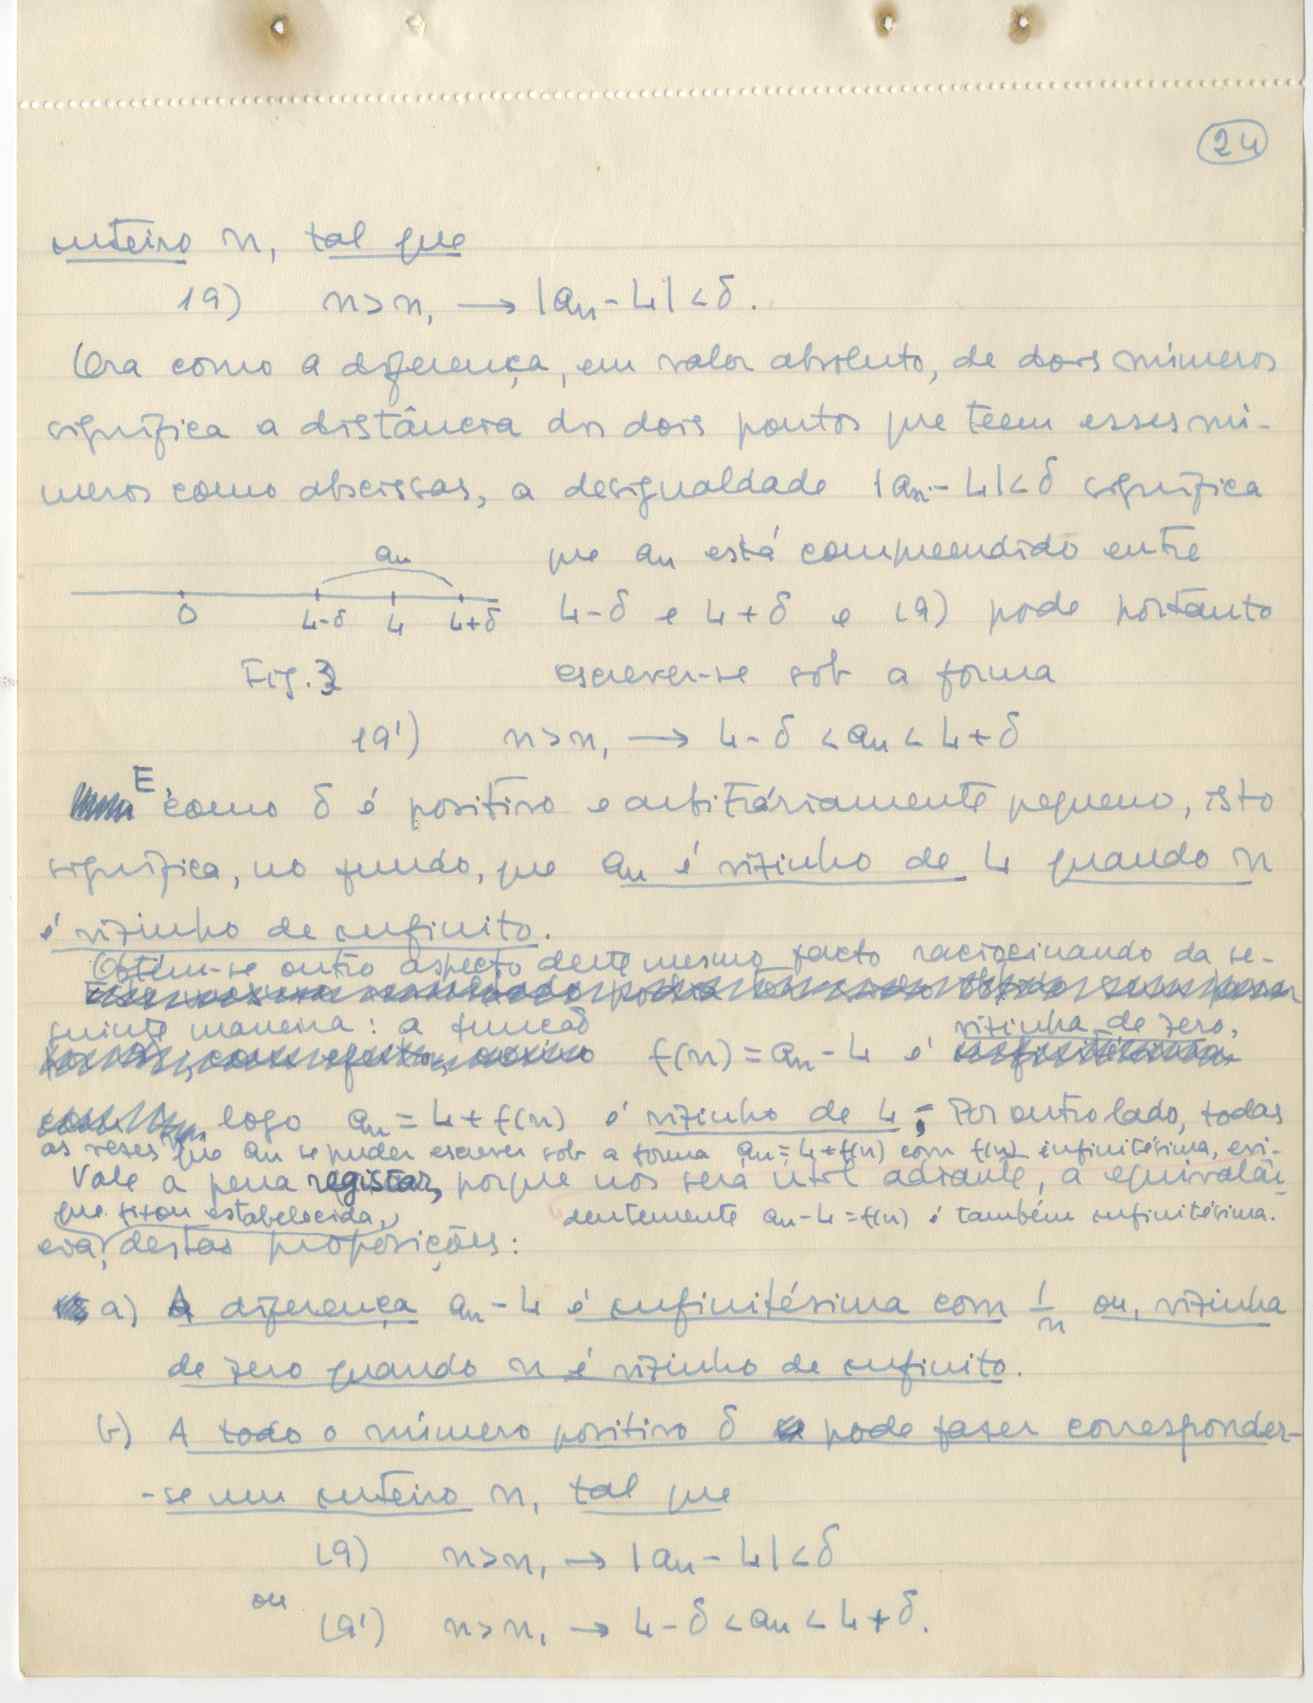 24
inteiro n₁ tal que
(9) n>n₁ → |aₙ-L|<δ.
Ora como a diferença, em valor absoluto, de dois números
significa a distância dos dois pontos que teem esses nú-
meros como abscissas, a desigualdade |aₙ-L|<δ significa
aₙ
que aₙ está compreendido entre
0 L-δ L L+δ
L-δ e L+δ e (9) pode portanto
Fig. 3
escrever-se sob a forma
(9') n>n₁ → L-δ<aₙ<L+δ
E como δ é positivo e arbitráriamente pequeno, isto
significa, no fundo, que aₙ é vizinho de L quando n
é vizinho de infinito.
Obtém-se outro aspecto deste mesmo facto raciocinando da se-
guinte maneira: a função f(n)=aₙ-L é vizinha de zero,
logo aₙ=L+f(n) é vizinho de L; Por outro lado, todas
as vezes que aₙ se puder escrever sob a forma aₙ=L+f(n) com f(n) infinitésima, evi-
dentemente aₙ-L=f(n) é também infinitésima.
Vale a pena registar, porque nos será útil adiante, a equivalên-
cia, que ficou estabelecida, destas proposições:
a) A diferença aₙ-L é infinitésima com 1/n ou, vizinha
de zero quando n é vizinho de infinito.
b) A todo o número positivo δ pode fazer corresponder-
-se um inteiro n₁ tal que
(9) n>n₁ → |aₙ-L|<δ
ou
(9') n>n₁ → L-δ<aₙ<L+δ.